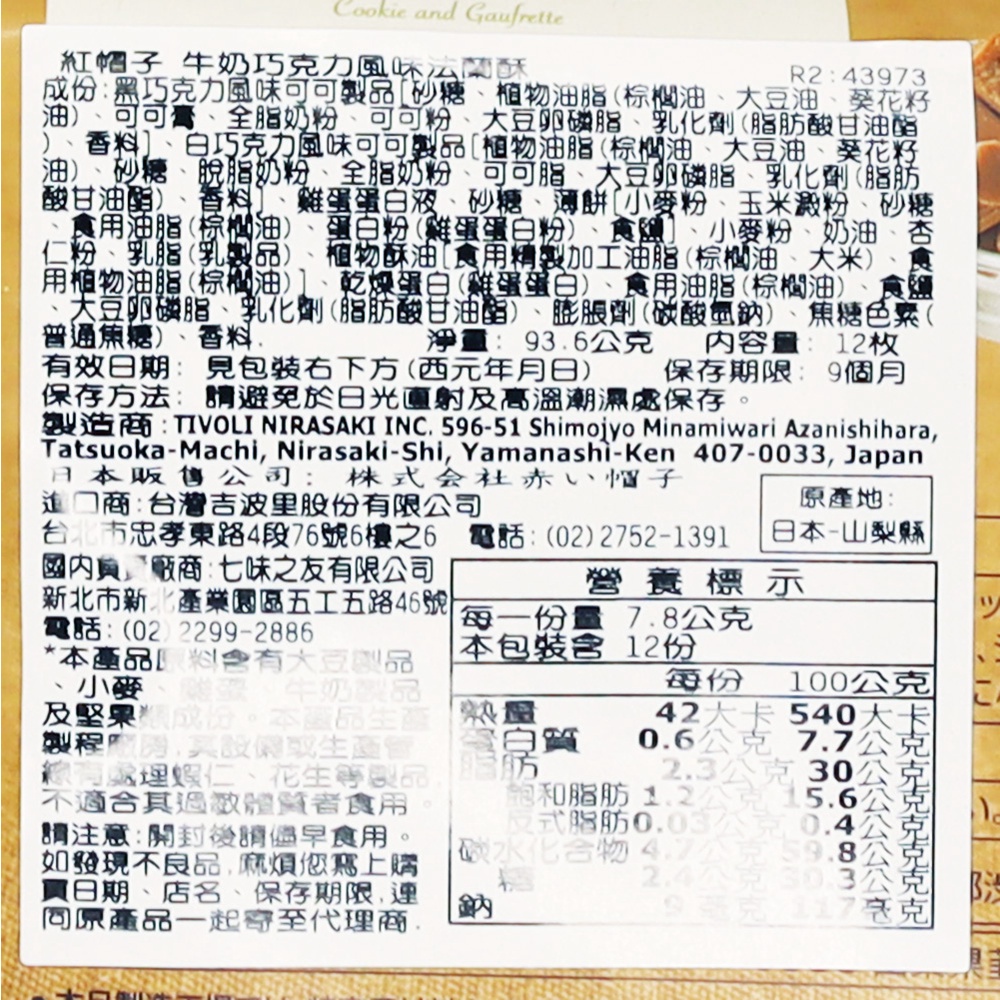 Cookie and Gaufrette
紅帽子 牛奶巧克力風味法蘭酥
R2:43973
成份:黑巧克力風味可可製品[砂糖、植物油脂(棕櫚油、大豆油、葵花籽
油)、可可膏、全脂奶粉、可可粉、大豆卵磷脂、乳化劑(脂肪酸甘油酯
)、香料]、白巧克力風味可可製品[植物油脂(棕櫚油、大豆油、葵花籽
油)、砂糖、脫脂奶粉、全脂奶粉、可可脂、大豆卵磷脂、乳化劑(脂肪
酸甘油酯)、香料]、雞蛋蛋白液、砂糖、薄餅[小麥粉、玉米澱粉、砂糖
、食用油脂(棕櫚油)、蛋白粉(雞蛋蛋白粉)、食鹽]、小麥粉、奶油、杏
仁粉、乳脂(乳製品)、植物酥油[食用精製加工油脂(棕櫚油、大米)、食
用植物油脂(棕櫚油)]、乾燥蛋白(雞蛋蛋白)、食用油脂(棕櫚油)、食鹽
、大豆卵磷脂、乳化劑(脂肪酸甘油酯)、膨脹劑(碳酸氫鈉)、焦糖色素(
普通焦糖)、香料. 淨量: 93.6公克 內容量: 12枚
有效日期: 見包裝右下方(西元年月日) 保存期限: 9個月
保存方法: 請避免於日光直射及高溫潮濕處保存。
製造商:TIVOLI NIRASAKI INC. 596-51 Shimojyo Minamiwari Azanishihara,
Tatsuoka-Machi, Nirasaki-Shi, Yamanashi-Ken 407-0033, Japan
日本販售公司: 株式会社赤い帽子
進口商:台灣吉波里股份有限公司
台北市忠孝東路4段76號6樓之6 電話:(02)2752-1391
原產地:
日本-山梨縣
國內負責廠商:七味之友有限公司
新北市新北產業園區五工五路46號
電話:(02)2299-2886
*本產品原料含有大豆製品
、小麥、雞蛋、牛奶製品
及堅果類成份。本產品生產
製程廠房,其設備或生產管
線有處理蝦仁、花生等製品,
不適合其過敏體質者食用。
請注意:開封後請儘早食用。
如發現不良品,麻煩您寫上購
買日期、店名、保存期限,連
同原產品一起寄至代理商.
營養標示
每一份量 7.8公克
本包裝含 12份
每份 100公克
熱量 42大卡 540大卡
蛋白質 0.6公克 7.7公克
脂肪 2.3公克 30公克
飽和脂肪 1.2公克 15.6公克
反式脂肪 0.03公克 0.4公克
碳水化合物 4.7公克 59.8公克
糖 2.4公克 30.3公克
鈉 9毫克 117毫克